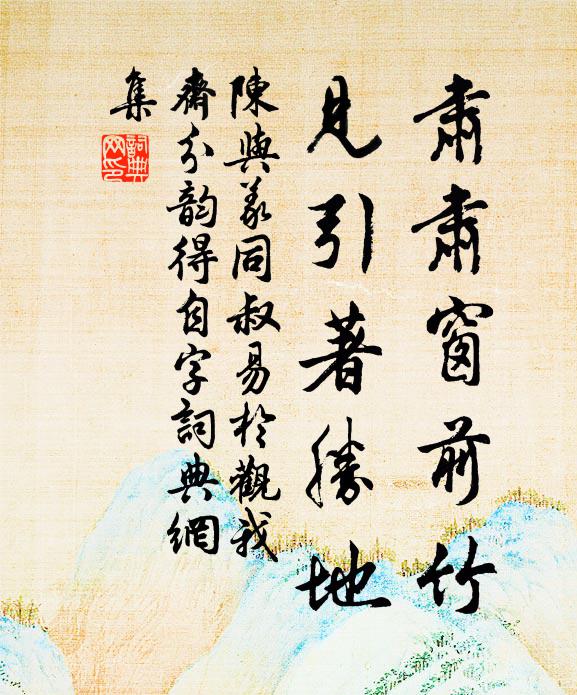 肅肅窗前竹
見引著勝地
陳與義同叔易於觀我
齋分韵得自字詞典網
集
詞典
网印